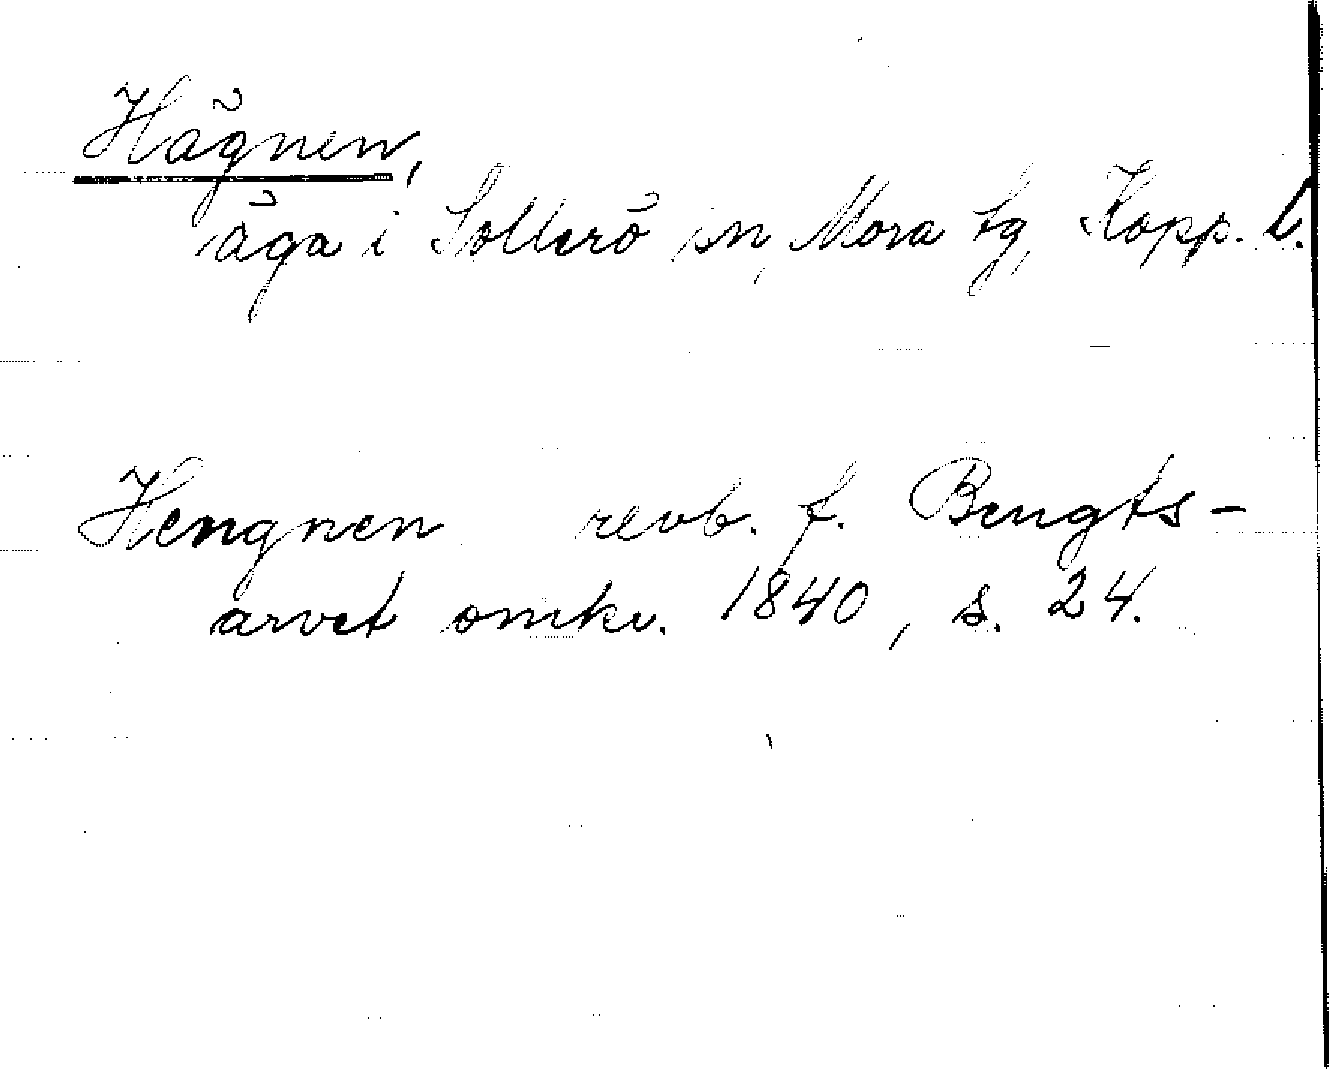 Hägnen,
äga i Sollerö sn, Mora tg, Kopp. l.
Hengnen revb. f. Bengts-
arvet omkr. 1840, s. 24.